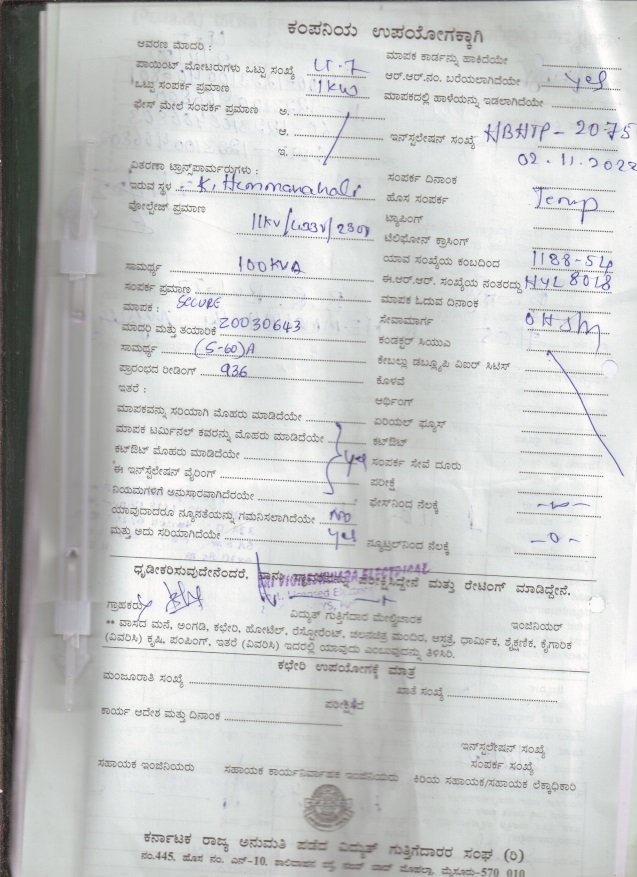 ಕಂಪನಿಯ ಉಪಯೋಗಕ್ಕಾಗಿ
ಆವರಣ ಮಾದರಿ :
ಮಾಪಕ ಕಾರ್ಡನ್ನು ಹಾಕಿದೆಯೇ
ಪಾಯಿಂಟ್ ಮೋಟರುಗಳು ಒಟ್ಟು ಸಂಖ್ಯೆ
ಆರ್.ಆರ್.ನಂ. ಬರೆಯಲಾಗಿದೆಯೇ yes
ಒಟ್ಟು ಸಂಪರ್ಕ ಪ್ರಮಾಣ 1KW
ಮಾಪಕದಲ್ಲಿ ಹಾಳೆಯನ್ನು ಇಡಲಾಗಿದೆಯೇ
ಫೇಸ್ ಮೇಲೆ ಸಂಪರ್ಕ ಪ್ರಮಾಣ ಅ.
ಆ.
ಇನ್‌ಸ್ಟಲೇಷನ್ ಸಂಖ್ಯೆ HBHTP - 2075
ಇ.
02.11.2022
ವಿತರಣಾ ಟ್ರಾನ್ಸ್‌ಫಾರ್ಮರುಗಳು :
ಸಂಪರ್ಕ ದಿನಾಂಕ
ಇರುವ ಸ್ಥಳ : K, Hemmanahali
ಹೊಸ ಸಂಪರ್ಕ Temp
ವೋಲ್ಟೇಜ್ ಪ್ರಮಾಣ 11KV/433V/230V
ಟ್ಯಾಪಿಂಗ್
ಟೆಲಿಫೋನ್ ಕ್ರಾಸಿಂಗ್
ಸಾಮರ್ಥ್ಯ 100KVA
ಯಾವ ಸಂಖ್ಯೆಯ ಕಂಬದಿಂದ
ಸಂಪರ್ಕ ಪ್ರಮಾಣ
ಈ.ಆರ್.ಆರ್. ಸಂಖ್ಯೆಯ ನಂತರದ್ದು HYL 8018
ಮಾಪಕ : SECURE
ಮಾಪಕ ಓದುವ ದಿನಾಂಕ
ಮಾದರಿ ಮತ್ತು ತಯಾರಿಕೆ 20030643
ಸೇವಾಮಾರ್ಗ
ಸಾಮರ್ಥ್ಯ (5-60)A
ಕಂಡಕ್ಟರ್ ಸಿಯುಎ
ಪ್ರಾರಂಭದ ರೀಡಿಂಗ್ 936
ಕೇಬಲ್ಲು ಡಬ್ಲ್ಯೂಪಿ ವಿಐರ್ ಸಿಟಿಸ್
ಕೊಳವೆ
ಇತರೆ :
ಆರ್ಥಿಂಗ್
ಮಾಪಕವನ್ನು ಸರಿಯಾಗಿ ಮೊಹರು ಮಾಡಿದೆಯೇ
ಏರಿಯಲ್ ಫ್ಯೂಸ್
ಮಾಪಕ ಟರ್ಮಿನಲ್ ಕವರನ್ನು ಮೊಹರು ಮಾಡಿದೆಯೇ
ಕಟ್‌ಔಟ್
ಕಟ್‌ಔಟ್ ಮೊಹರು ಮಾಡಿದೆಯೇ yes
ಸಂಪರ್ಕ ಸೇವೆ ದೂರು
ಈ ಇನ್‌ಸ್ಟಲೇಷನ್ ವೈರಿಂಗ್
ಪರೀಕ್ಷೆ
ನಿಯಮಗಳಿಗೆ ಅನುಸಾರವಾಗಿದೆರಯೇ
ಫೇಸ್‌ನಿಂದ ನೆಲಕ್ಕೆ
ಯಾವುದಾದರೂ ನ್ಯೂನತೆಯನ್ನು ಗಮನಿಸಲಾಗಿದೆಯೇ NO
ಮತ್ತು ಅದು ಸರಿಯಾಗಿದೆಯೇ yes
ನ್ಯೂಟ್ರಲ್‌ನಿಂದ ನೆಲಕ್ಕೆ -0-
ಧೃಡೀಕರಿಸುವುದೇನೆಂದರೆ, ಪರೀಕ್ಷಿಸಿದ್ದೇನೆ ಮತ್ತು ರೇಟಿಂಗ್ ಮಾಡಿದ್ದೇನೆ.
ELECTRICAL
ಗ್ರಾಹಕರು
ವಿದ್ಯುತ್ ಗುತ್ತಿಗೆದಾರ ಮೇಲ್ವಿಚಾರಕ
ಇಂಜಿನಿಯರ್
** ವಾಸದ ಮನೆ, ಅಂಗಡಿ, ಕಛೇರಿ, ಹೋಟೆಲ್, ರೆಸ್ಟೋರೆಂಟ್, ಚಲನಚಿತ್ರ ಮಂದಿರ, ಆಸ್ಪತ್ರೆ, ಧಾರ್ಮಿಕ, ಶೈಕ್ಷಣಿಕ, ಕೈಗಾರಿಕ
(ವಿವರಿಸಿ) ಕೃಷಿ, ಪಂಪಿಂಗ್, ಇತರೆ (ವಿವರಿಸಿ) ಇದರಲ್ಲಿ ಯಾವುದು ಎಂಬುವುದನ್ನು ತಿಳಿಸಿರಿ.
ಕಛೇರಿ ಉಪಯೋಗಕ್ಕೆ ಮಾತ್ರ
ಮಂಜೂರಾತಿ ಸಂಖ್ಯೆ
ಖಾತೆ ಸಂಖ್ಯೆ
ಪರೀಕ್ಷಿಸಿದೆ
ಕಾರ್ಯ ಆದೇಶ ಮತ್ತು ದಿನಾಂಕ
ಇನ್‌ಸ್ಟಲೇಷನ್ ಸಂಖ್ಯೆ
ಸಂಪರ್ಕ ಸಂಖ್ಯೆ
ಸಹಾಯಕ ಇಂಜಿನಿಯರು
ಸಹಾಯಕ ಕಾರ್ಯನಿರ್ವಾಹಕ ಇಂಜಿನಿಯರು
ಕಿರಿಯ ಸಹಾಯಕ/ಸಹಾಯಕ ಲೆಕ್ಕಾಧಿಕಾರಿ
ಕರ್ನಾಟಕ ರಾಜ್ಯ ಅನುಮತಿ ಪಡೆದ ವಿದ್ಯುತ್ ಗುತ್ತಿಗೆದಾರರ ಸಂಘ (ರಿ)
ನಂ.445, ಹೊಸ ನಂ. ಎನ್-10, ಮೈಸೂರು-570 010